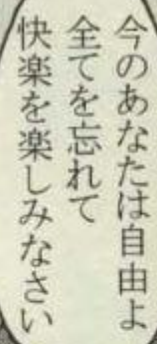 今のあなたは自由よ
全てを忘れて
快楽を楽しみなさい